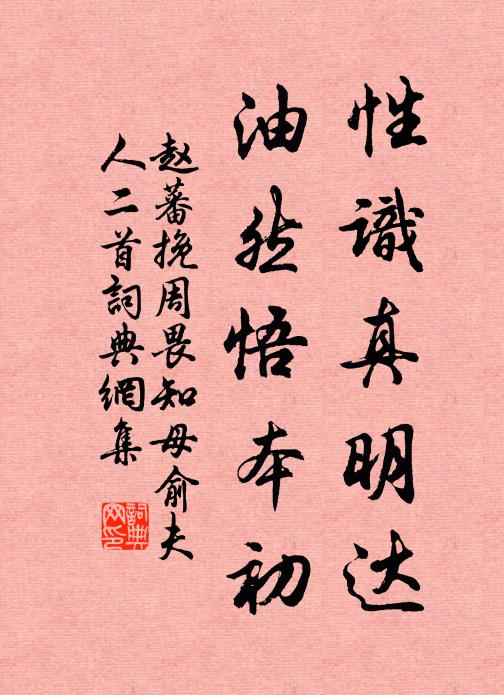 性識真明达
油然悟本初
赵蕃挽周畏知母俞夫
人二首詞典網集
詞典
网印